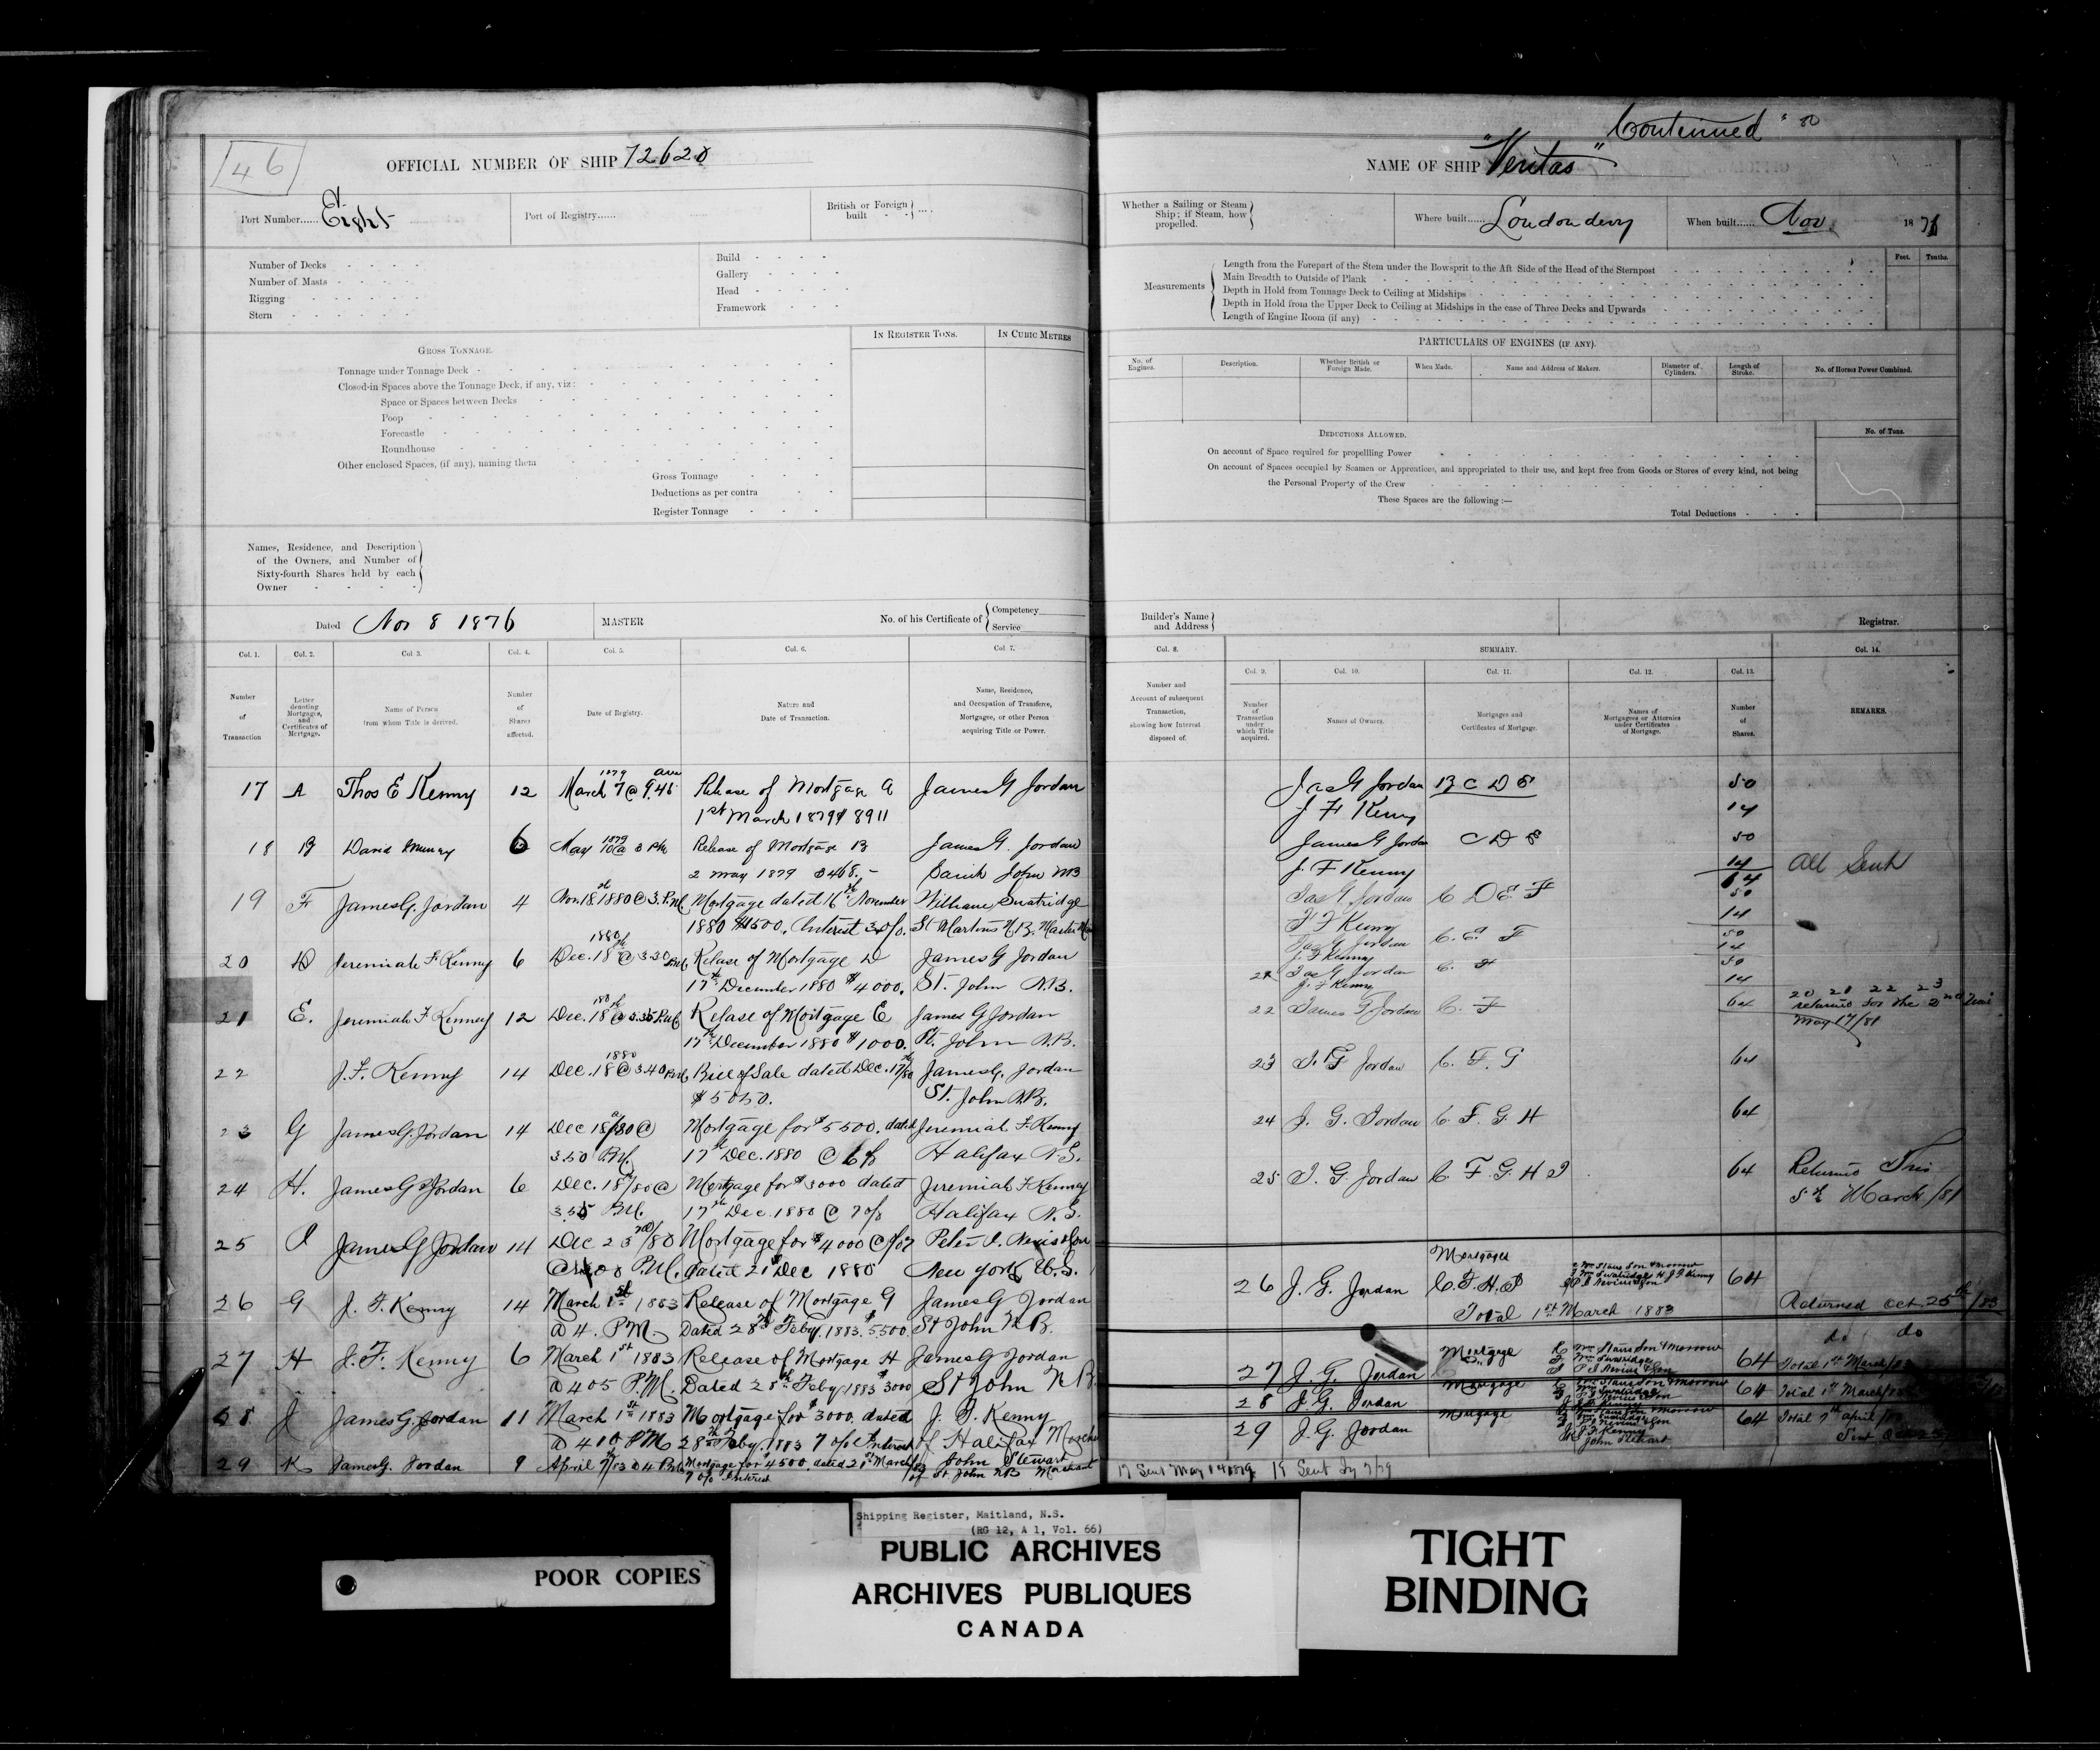 46
OFFICIAL NUMBER OF SHIP 72620
Port Number...... Eight
Port of Registry......
British or Foreign built - -
Number of Decks
Number of Masts
Rigging
Stern
Build
Gallery
Head
Framework
IN REGISTER TONS.
IN CUBIC METRES
GROSS TONNAGE.
Tonnage under Tonnage Deck
Closed-in Spaces above the Tonnage Deck, if any, viz:
Space or Spaces between Decks
Poop
Forecastle
Roundhouse
Other enclosed Spaces, (if any), naming them
Gross Tonnage
Deductions as per contra
Register Tonnage
Names, Residence, and Description
of the Owners, and Number of
Sixty-fourth Shares held by each
Owner
Dated Nov 8 1876
MASTER
No. of his Certificate of
Competency
Service
Col. 1. Col. 2. Col 3. Col. 4. Col. 5. Col. 6. Col. 7.
Number of Transaction
Letter denoting Mortgages, and Certificates of Mortgage.
Name of Person from whom Title is derived.
Number of Shares affected.
Date of Registry.
Nature and Date of Transaction.
Name, Residence, and Occupation of Transferee, Mortgagee, or other Person acquiring Title or Power.
17 A Thos E Kenny 12 March 7 1879 @ 9.45 Release of Mortgage A James G Jordan
1st March 1879 $8911
18 B David Murray 6 May 10 1879 @ 3 PM Release of Mortgage B James G. Jordan
2 May 1879 $468.- Saint John NB
19 F James G. Jordan 4 Nov. 18th 1880 @ 3. P.M. Mortgage dated 16th November William
1880 $1500. Interest St Martins N.B.
20 D Jeremiah F. Kenny 6 Dec. 18th 1880 @ 3.30 P.M. Release of Mortgage D James G Jordan
17th December 1880 $4000. St. John N.B.
21 E. Jeremiah F Kenney 12 Dec. 18th 1880 @ 3.35 P.M. Release of Mortgage E James G Jordan
17th December 1880 $1000. St. John N.B.
22 J. F. Kenny 14 Dec. 18 1880 @ 3.40 P.M. Bill of Sale dated Dec. 17th/80 James G. Jordan
$5050. St. John N.B.
23 G James G. Jordan 14 Dec 18/80 @ Mortgage for $5500. dated Jeremiah F. Kenny
3.50 P.M. 17th Dec. 1880 @ 6% Halifax N.S.
24 H. James G Jordan 6 Dec. 18/80 @ Mortgage for $3000 dated Jeremiah F Kenny
3.55 P.M. 17th Dec. 1880 @ 7% Halifax N.S.
25 I James G Jordan 14 Dec 23rd/80 Mortgage for $4000 @ Peter I. Nevis & Son
P.M. dated 21st Dec 1880 New York U.S.
26 G J. F. Kenny 14 March 1st 1883 Release of Mortgage G James G Jordan
@ 4. P.M. Dated 28th Feby. 1883. $5500. St John N.B.
27 H J. F. Kenny 6 March 1st 1883 Release of Mortgage H James G Jordan
@ 405 P.M. Dated 28th Feby 1883 $3000 St John N B
28 J James G. Jordan 11 March 1st 1883 Mortgage for $3000. dated J. F. Kenny
@ 410 PM 28th Feby. 1883 7 o/o Interest of Halifax
29 K James G. Jordan 9 April 7/83 @ 4 P.M. Mortgage for $4500. dated 21st March/83 John Stewart
7 o/o Interest of St John NB Merchant
Continued
NAME OF SHIP "Veritas"
Whether a Sailing or Steam Ship; if Steam, how propelled.
Where built...... Londonderry
When built...... Nov 1876
Measurements
Length from the Forepart of the Stem under the Bowsprit to the Aft Side of the Head of the Sternpost
Main Breadth to Outside of Plank
Depth in Hold from Tonnage Deck to Ceiling at Midships
Depth in Hold from the Upper Deck to Ceiling at Midships in the case of Three Decks and Upwards
Length of Engine Room (if any)
Feet. Tenths.
PARTICULARS OF ENGINES (IF ANY).
No. of Engines.
Description.
Whether British or Foreign Made.
When Made.
Name and Address of Makers.
Diameter of Cylinders.
Length of Stroke.
No. of Horses Power Combined.
DEDUCTIONS ALLOWED.
No. of Tons.
On account of Space required for propelling Power
On account of Spaces occupied by Seamen or Apprentices, and appropriated to their use, and kept free from Goods or Stores of every kind, not being
the Personal Property of the Crew
These Spaces are the following:—
Total Deductions
Builder's Name and Address
Registrar.
Col. 8.
SUMMARY.
Col. 14.
Col. 9. Col. 10. Col. 11. Col. 12. Col. 13.
Number and Account of subsequent Transaction, showing how Interest disposed of.
Number of Transaction under which Title acquired.
Names of Owners.
Mortgages and Certificates of Mortgage.
Names of Mortgagees or Attornies under Certificates of Mortgage.
Number of Shares.
REMARKS.
Jas G Jordan B C D E 50
J F Kenny 14
James G Jordan C D E 50
J. F Kenny 14 All Sent
64
Jas G. Jordan C D E F 50
J F Kenny 14
Jas G Jordan C. E. F 50
J. F Kenny 14
21 Jas G Jordan C. F 50
J. F Kenny 14
22 James G Jordan C. F 64
20 21 22 23
returned for the
May 17/81
23 J. G Jordan C. F. G 64
24 J. G. Jordan C. F. G. H 64
25 J. G. Jordan C. F. G. H I 64 Returned This
5th March/81
Mortgages
26 J. G. Jordan C. F. H. I 64
Total 1st March 1883
Returned Oct. 25th/83
do do
27 J. G. Jordan Mortgage 64 Total 1st March/83
28 J. G. Jordan Mortgage 64 Total 1st March/83
29 J. G. Jordan Mortgage 64 Total 7th April/83
J. F Kenny
John Stewart
Sent Oct
17 Sent May 14 1879. 18 Sent Jy 7/79
Shipping Register, Maitland, N.S.
(RG 12, A 1, Vol. 66)
POOR COPIES
PUBLIC ARCHIVES
ARCHIVES PUBLIQUES
CANADA
TIGHT
BINDING